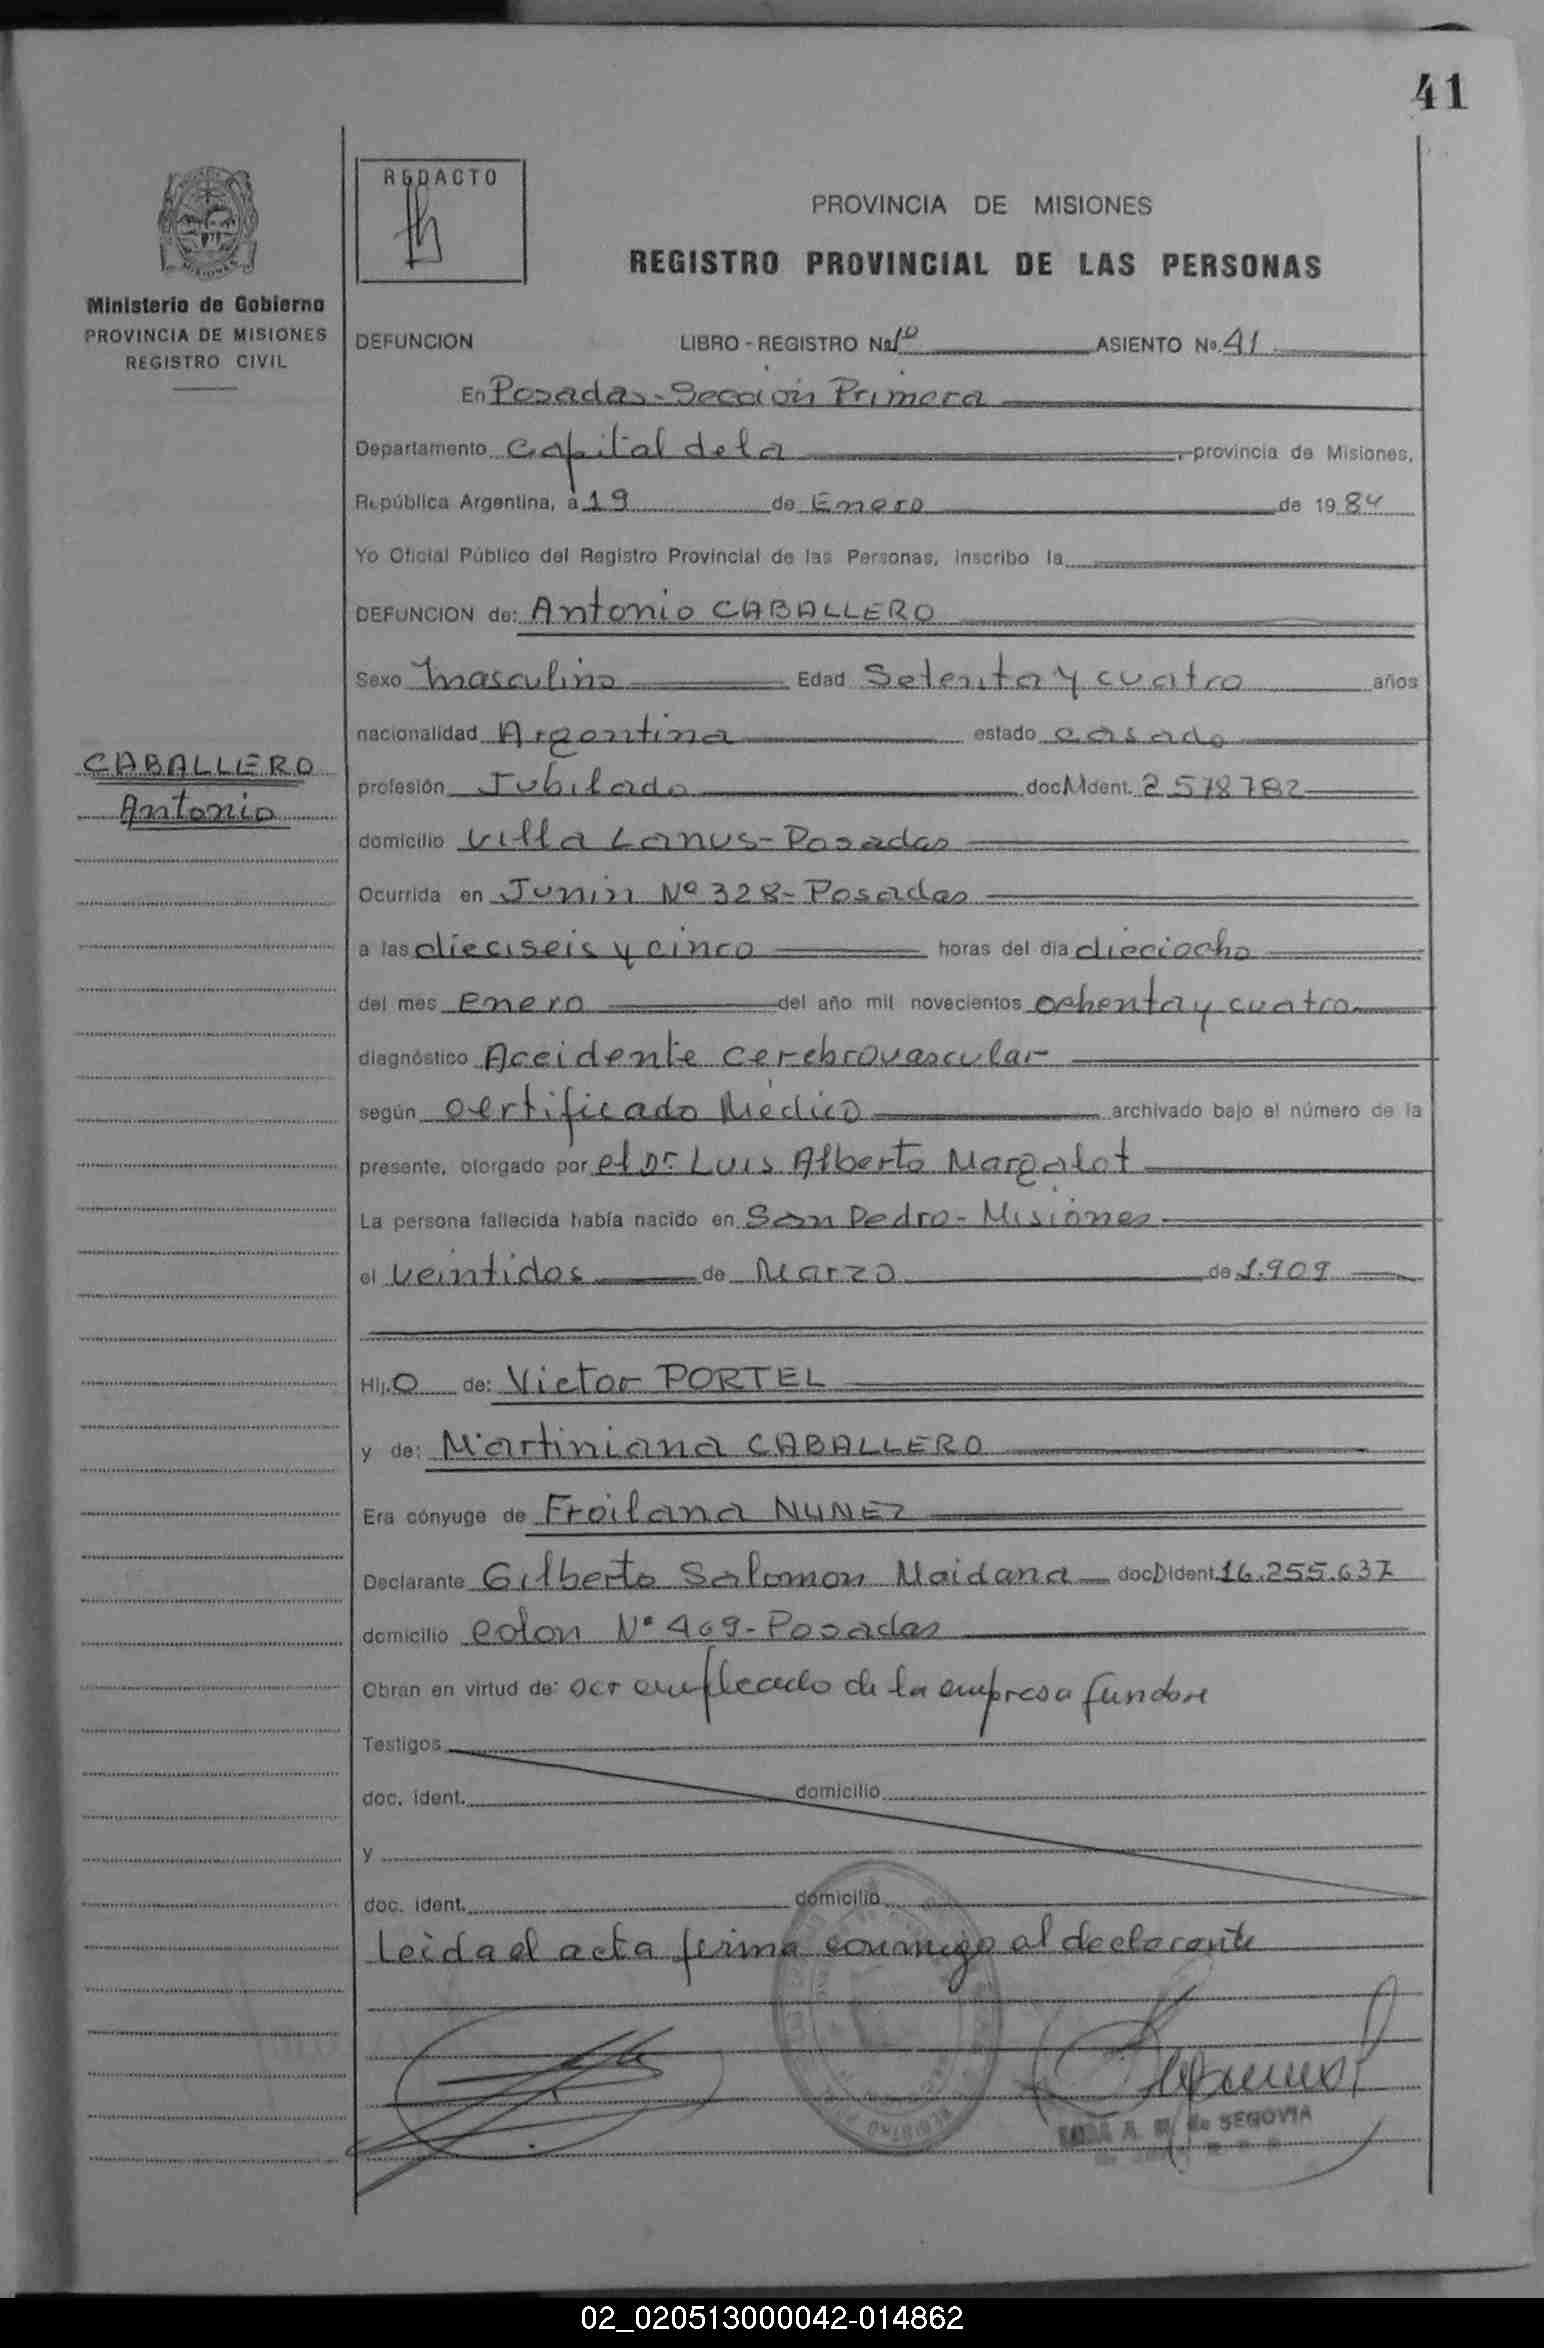 41
REDACTO
PROVINCIA DE MISIONES
REGISTRO PROVINCIAL DE LAS PERSONAS
MISIONES
Ministerio de Gobierno
PROVINCIA DE MISIONES
REGISTRO CIVIL
DEFUNCION LIBRO - REGISTRO No 1º ASIENTO No. 41
En Posadas - Sección Primera
Departamento Capital de la, provincia de Misiones,
República Argentina, a 19 de Enero de 1984
Yo Oficial Público del Registro Provincial de las Personas, inscribo la
DEFUNCION de: Antonio CABALLERO
Sexo Masculino Edad Setenta y cuatro años
nacionalidad Argentina estado casado
CABALLERO
Antonio
profesión Jubilado doc. M ident. 2578782
domicilio Villa Lanus - Posadas
Ocurrida en Junin Nº 328 - Posadas
a las dieciseis y cinco horas del día dieciocho
del mes Enero del año mil novecientos ochenta y cuatro
diagnóstico Accidente cerebrovascular
según certificado Médico archivado bajo el número de la
presente, otorgado por el Dr Luis Alberto Margalot
La persona fallecida había nacido en San Pedro - Misiones
el veintidos de Marzo de 1.909
Hij.O de: Victor PORTEL
y de: Martiniana CABALLERO
Era cónyuge de Froilana NUNEZ
Declarante Gilberto Salomon Maidana doc. D ident. 16.255.637
domicilio Colon Nº 469 - Posadas
Obran en virtud de: ser empleado de la empresa
Testigos
doc. ident. domicilio
y
doc. ident. domicilio
Leida el acta firma conmigo el declarante
A. M. de SEGOVIA
02_020513000042-014862